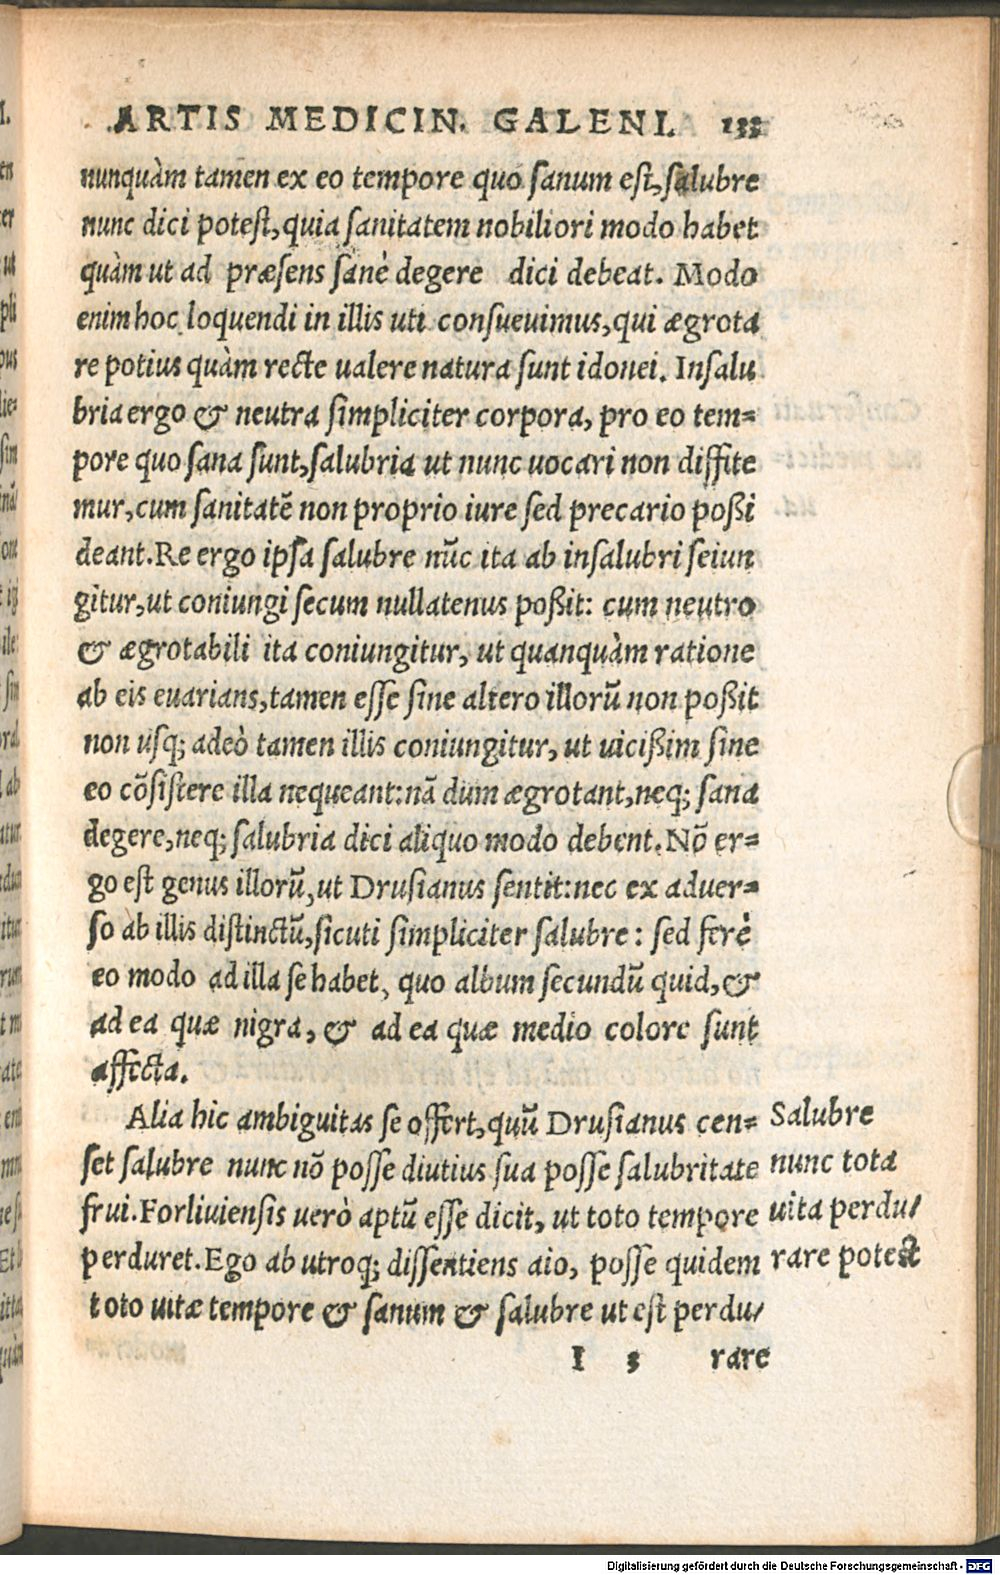 ARTIS MEDICIN. GALENI. 133
nunquàm tamen ex eo tempore quo sanum est, salubre
nunc dici potest, quia sanitatem nobiliori modo habet
quàm ut ad præsens sanè degere dici debeat. Modo
enim hoc loquendi in illis uti consueuimus, qui ægrota
re potius quàm recte ualere natura sunt idonei. Insalu
bria ergo & neutra simpliciter corpora, pro eo tem=
pore quo sana sunt, salubria ut nunc uocari non diffite
mur, cum sanitatē non proprio iure sed precario poßi
deant. Re ergo ipsa salubre nūc ita ab insalubri seiun
gitur, ut coniungi secum nullatenus poßit: cum neutro
& ægrotabili ita coniungitur, ut quanquàm ratione
ab eis euarians, tamen esse sine altero illorū non poßit
non usq; adeò tamen illis coniungitur, ut uicißim sine
eo cōsistere illa nequeant: nā dum ægrotant, neq; sana
degere, neq; salubria dici aliquo modo debent. Nō er=
go est genus illorū, ut Drusianus sentit: nec ex aduer=
so ab illis distinctū, sicuti simpliciter salubre: sed ferè
eo modo ad illa se habet, quo album secundū quid, &
ad ea quæ nigra, & ad ea quæ medio colore sunt
affecta.
Alia hic ambiguitas se offert, quū Drusianus cen=
set salubre nunc nō posse diutius sua posse salubritate
frui. Forliuiensis uerò aptū esse dicit, ut toto tempore
perduret. Ego ab utroq; dissentiens aio, posse quidem
toto uitæ tempore & sanum & salubre ut est perdu/
I 3 rare
Salubre
nunc tota
uita perdu/
rare potest
Digitalisierung gefördert durch die Deutsche Forschungsgemeinschaft - DFG